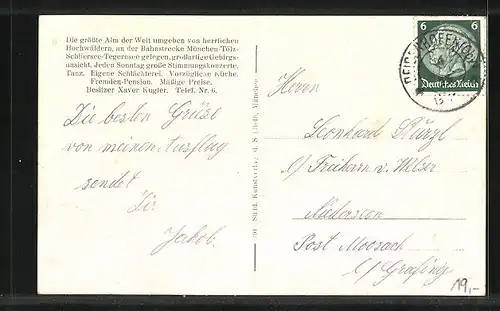 Die größte Alm der Welt umgeben von herrlichen
Hochwäldern, an der Bahnstrecke München-Tölz-
Schliersee-Tegernsee gelegen, großartige Gebirgs-
ansicht. Jeden Sonntag große Stimmungskonzerte.
Tanz. Eigene Schlächterei. Vorzügliche Küche.
Fremden-Pension. Mäßige Preise.
Besitzer Xaver Kugler. Telef. Nr. 6.
Die besten Grüße
von meinem Ausflug
sendet
Dir
Jakob.
Südd. Kunstverlag
München
6 6
Deutsches Reich
Herrn
Leonhard
b/ Freiherrn v.
Post Moosach
b/ Grafing
19,-